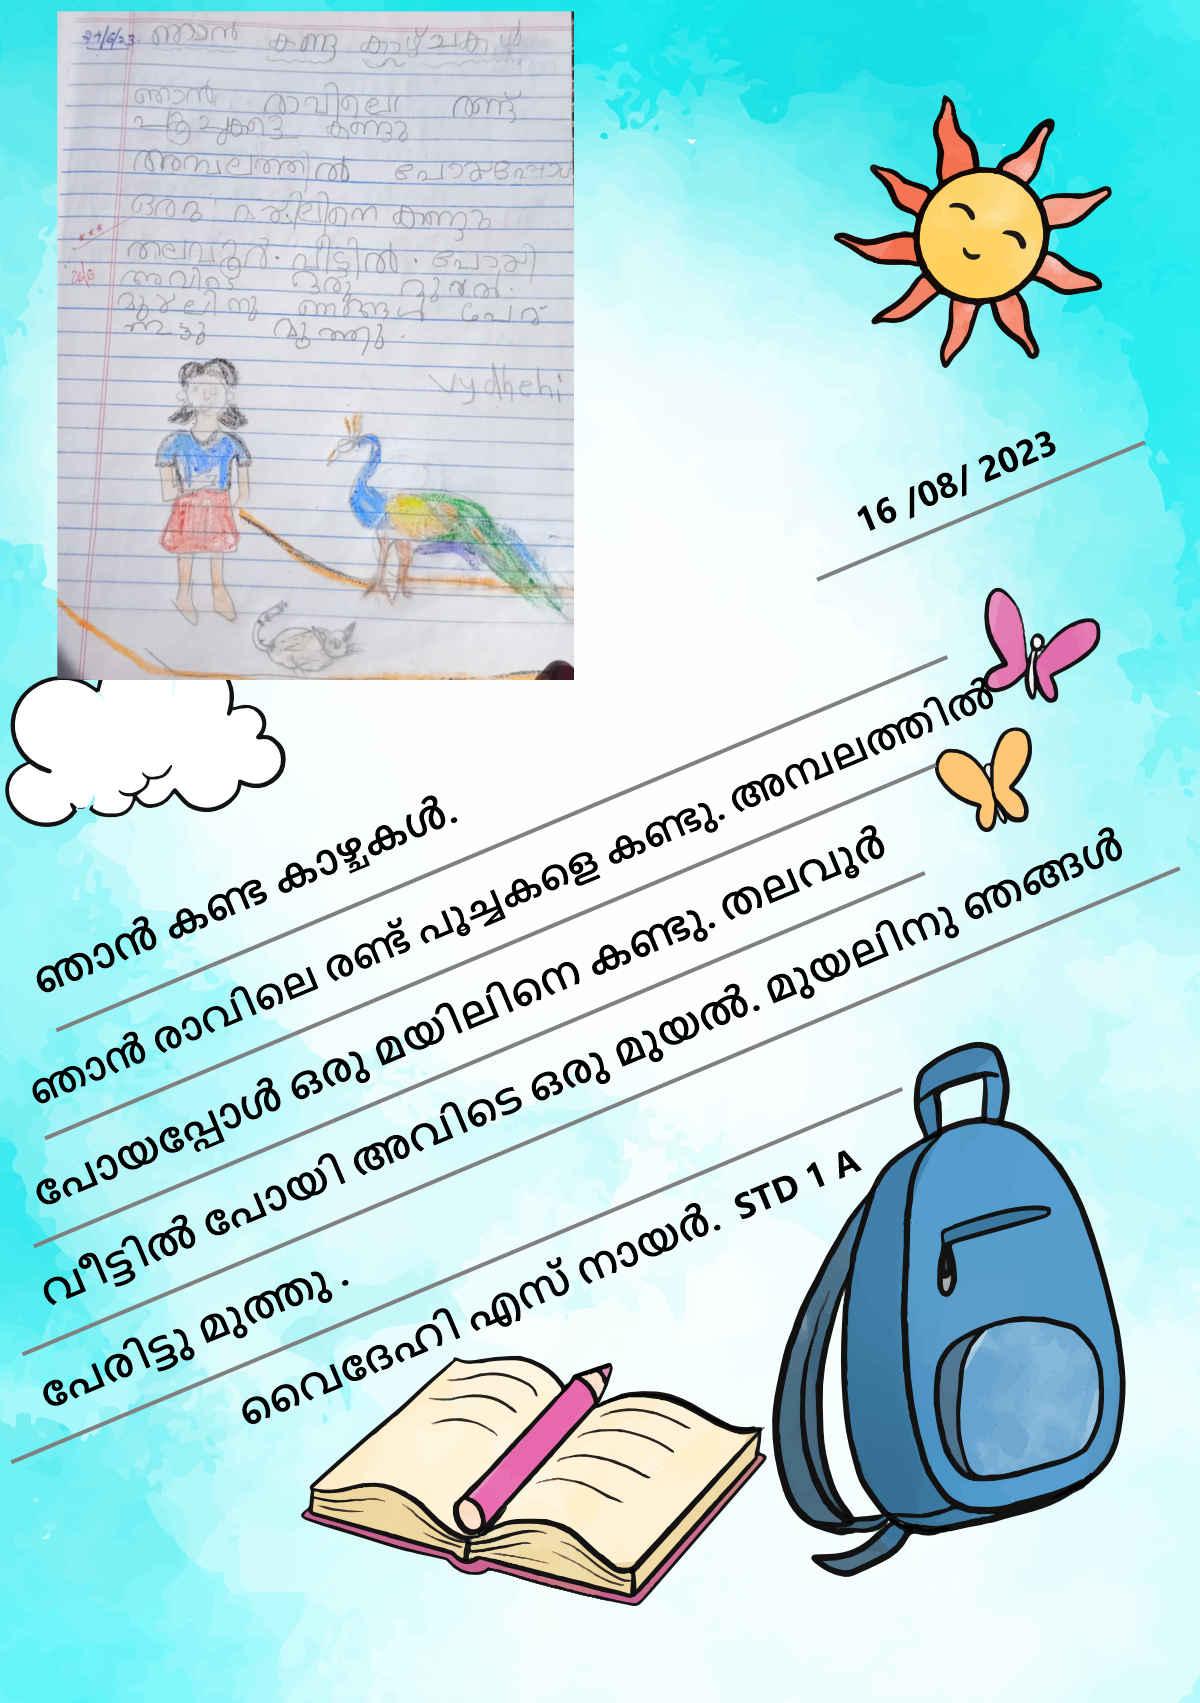 27/6/23 ഞാൻ കണ്ട കാഴ്ചകൾ
ഞാൻ രാവിലെ രണ്ട്
കണ്ടു
അമ്പലത്തിൽ
ഒരു കണ്ടു
തലവൂർ. വീട്ടിൽ. പോയി
ഒരു മുയൽ.
മുയലിനു ഞങ്ങൾ പേര്
മുത്തു.
Vydhehi
16 /08/ 2023
ഞാൻ കണ്ട കാഴ്ചകൾ.
ഞാൻ രാവിലെ രണ്ട് പൂച്ചകളെ കണ്ടു. അമ്പലത്തിൽ
പോയപ്പോൾ ഒരു മയിലിനെ കണ്ടു. തലവൂർ
വീട്ടിൽ പോയി അവിടെ ഒരു മുയൽ. മുയലിനു ഞങ്ങൾ
പേരിട്ടു മുത്തു .
വൈദേഹി എസ് നായർ. STD 1 A